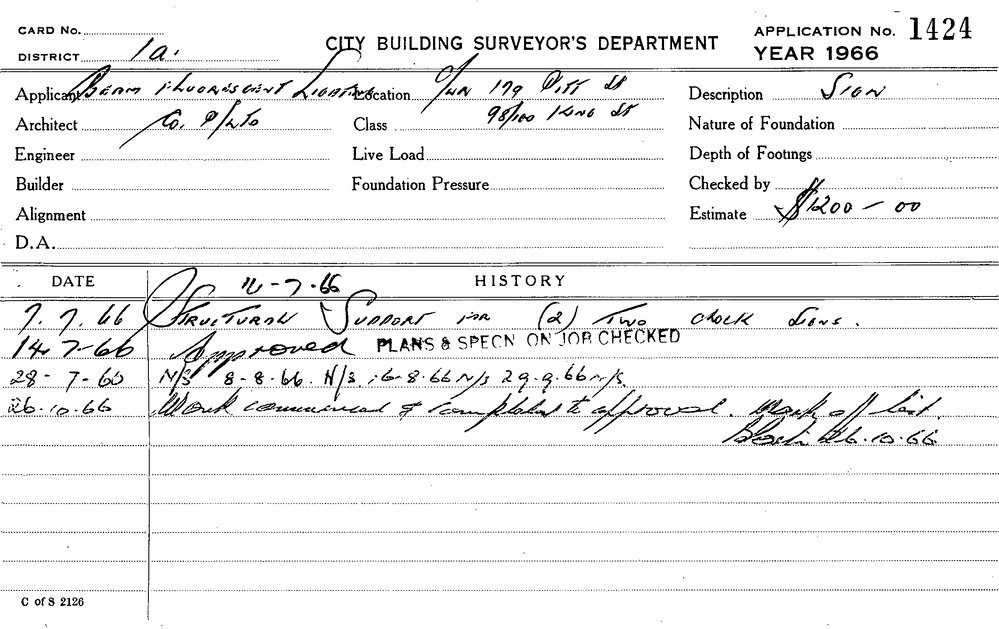 CARD No.
CITY BUILDING SURVEYOR'S DEPARTMENT
APPLICATION No. 1424
DISTRICT 1a.
YEAR 1966
Applicant Beam Fluorescent Lighting
Location 179 Pitt St
Description Sign
Architect Co. P/Lto
Class 98/100 King St
Nature of Foundation
Engineer
Live Load
Depth of Footings
Builder
Foundation Pressure
Checked by
Alignment
Estimate $1200-00
D.A.
DATE
HISTORY
12-7-66
7.7.66 Structural Support for (2) Two clock signs.
14.7-66 Approved PLANS & SPECN ON JOB CHECKED
28-7-60 N/S 8-8.66. N/S 16-8.66 N/S 29.9.66 N/S.
26.10.66 Work commenced & completed to approval. Mark off list.
26.10.66
C of S 2126